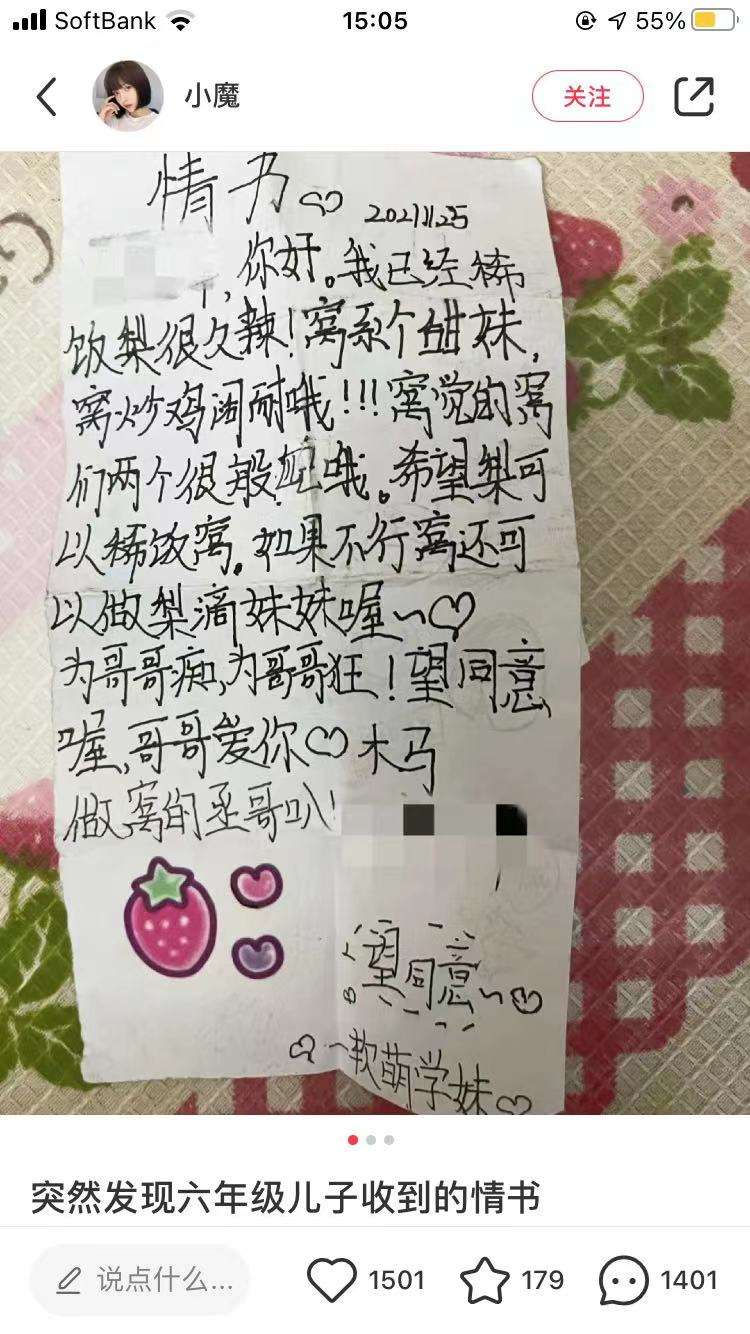 SoftBank 15:05 55%
小魔 关注
情书
2021.11.25
你好。我已经稀
饭梨很久辣！窝系个甜妹，
窝炒鸡闹耐哦!!!窝觉的窝
们两个很般配哦。希望梨可
以稀饭窝。如果不行窝还可
以做梨滴妹妹喔~♡
为哥哥痴，为哥哥狂！望同意
喔，哥哥爱你♡木马
做窝的丞哥叭！
望同意~
软萌学妹♡
突然发现六年级儿子收到的情书
说点什么... 1501 179 1401